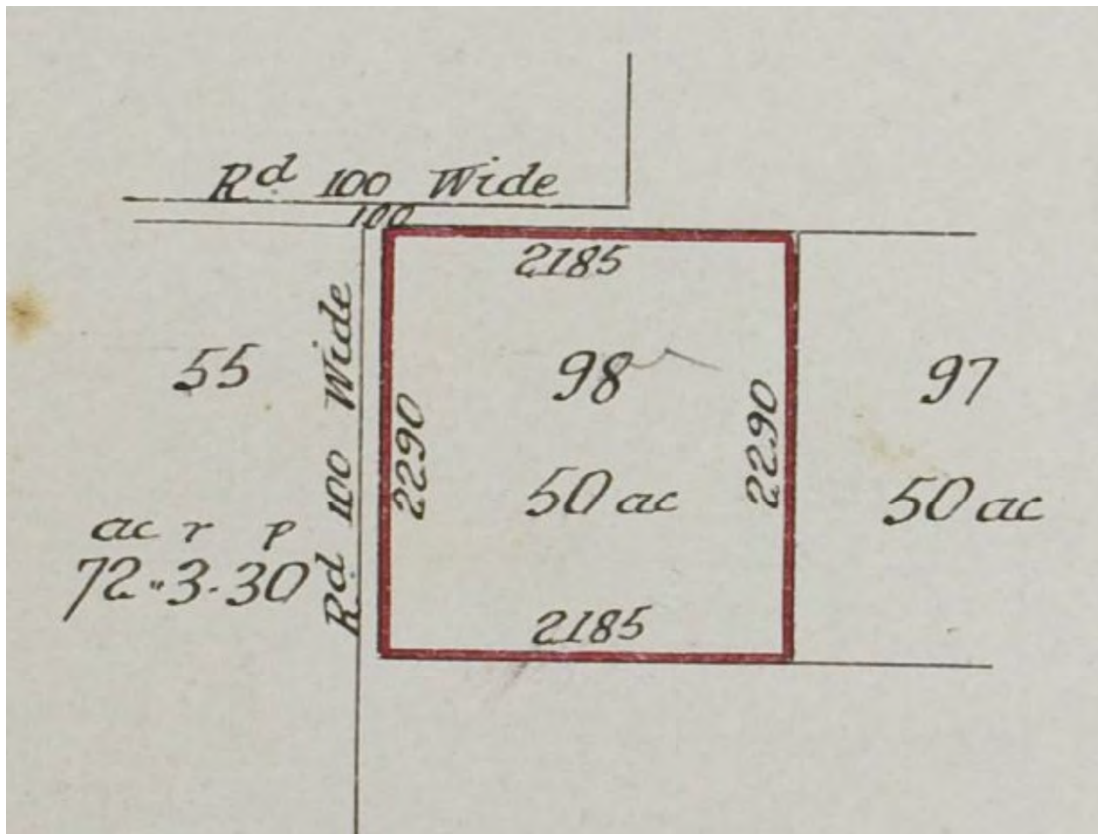 Rd 100 Wide
100
2185
55
Rd 100 Wide
98
97
2290
2290
50 ac
50 ac
ac r p
72"3.30
2185